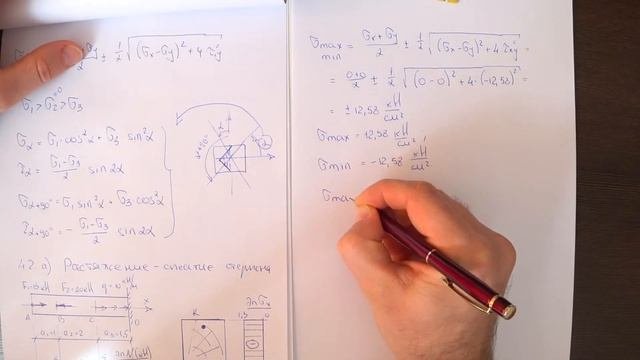 σy/2 ± 1/2 √((σx-σy)² + 4τ²xy
σ₁ > σ₂ =0 > σ₃
σα = σ₁·cos²α + σ₃ sin²α
τα = (σ₁-σ₃)/2 sin2α
σα+90° = σ₁ sin²α + σ₃ cos²α
τα+90° = - (σ₁-σ₃)/2 sin2α
α+90°
α
4.2. а) Растяжение-сжатие стержня
F₂=20кН
x
A B C D
a₂=2 a₃=1,5
K
1,5 0
σmax min = (σx+σy)/2 ± 1/2 √((σx-σy)² + 4τ²xy =
= (0+0)/2 ± 1/2 √((0-0)² + 4·(-12,58)² =
= ± 12,58 кН/см²
σmax = 12,58 кН/см²,
σmin = -12,58 кН/см²
σmax